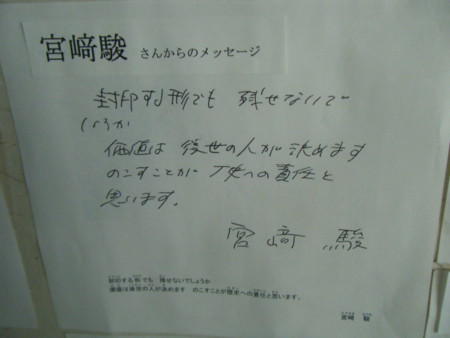 宮﨑駿 さんからのメッセージ
封印する形でも 残せないで
しょうか
価値は 後世の人が 決めます
のこすことが 歴史への責任と
思います。
宮﨑 駿
封印する形でも 残せないでしょうか
価値は後世の人が決めます のこすことが歴史への責任と思います。
宮﨑 駿